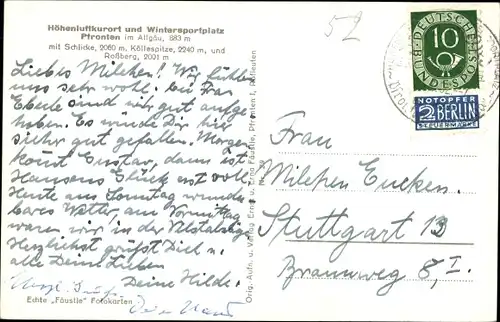 Höhenluftkurort und Wintersportplatz
Pfronten im Allgäu, 883 m
mit Schlicke, 2060 m, Köllespitze, 2240 m, und
Roßberg, 2001 m
Liebes Milchen! Wir fühlen
uns sehr wohl. Bei Frau
Eberle sind wir gut aufge-
hoben. Es würde Dir hier
sehr gut gefallen. Morgen
kommt Gustav, dann ist
Hansens Glück voll.
Heute am Sonntag wunder-
bares Wetter, am Vormittag
waren wir in der
Herzlichst grüßt Dich u.
alle Deine Lieben
Deine Hilde.
Echte „Fäustle" Fotokarten
Orig. Aufn. u. Verlag Ernst u. Erna Fäustle, Pfronten
52
DEUTSCHE BUNDESPOST
10
NOTOPFER
2 BERLIN
STEUERMARKE
Frau
Milchen Eucken
Stuttgart 13
Braunweg 8, I.